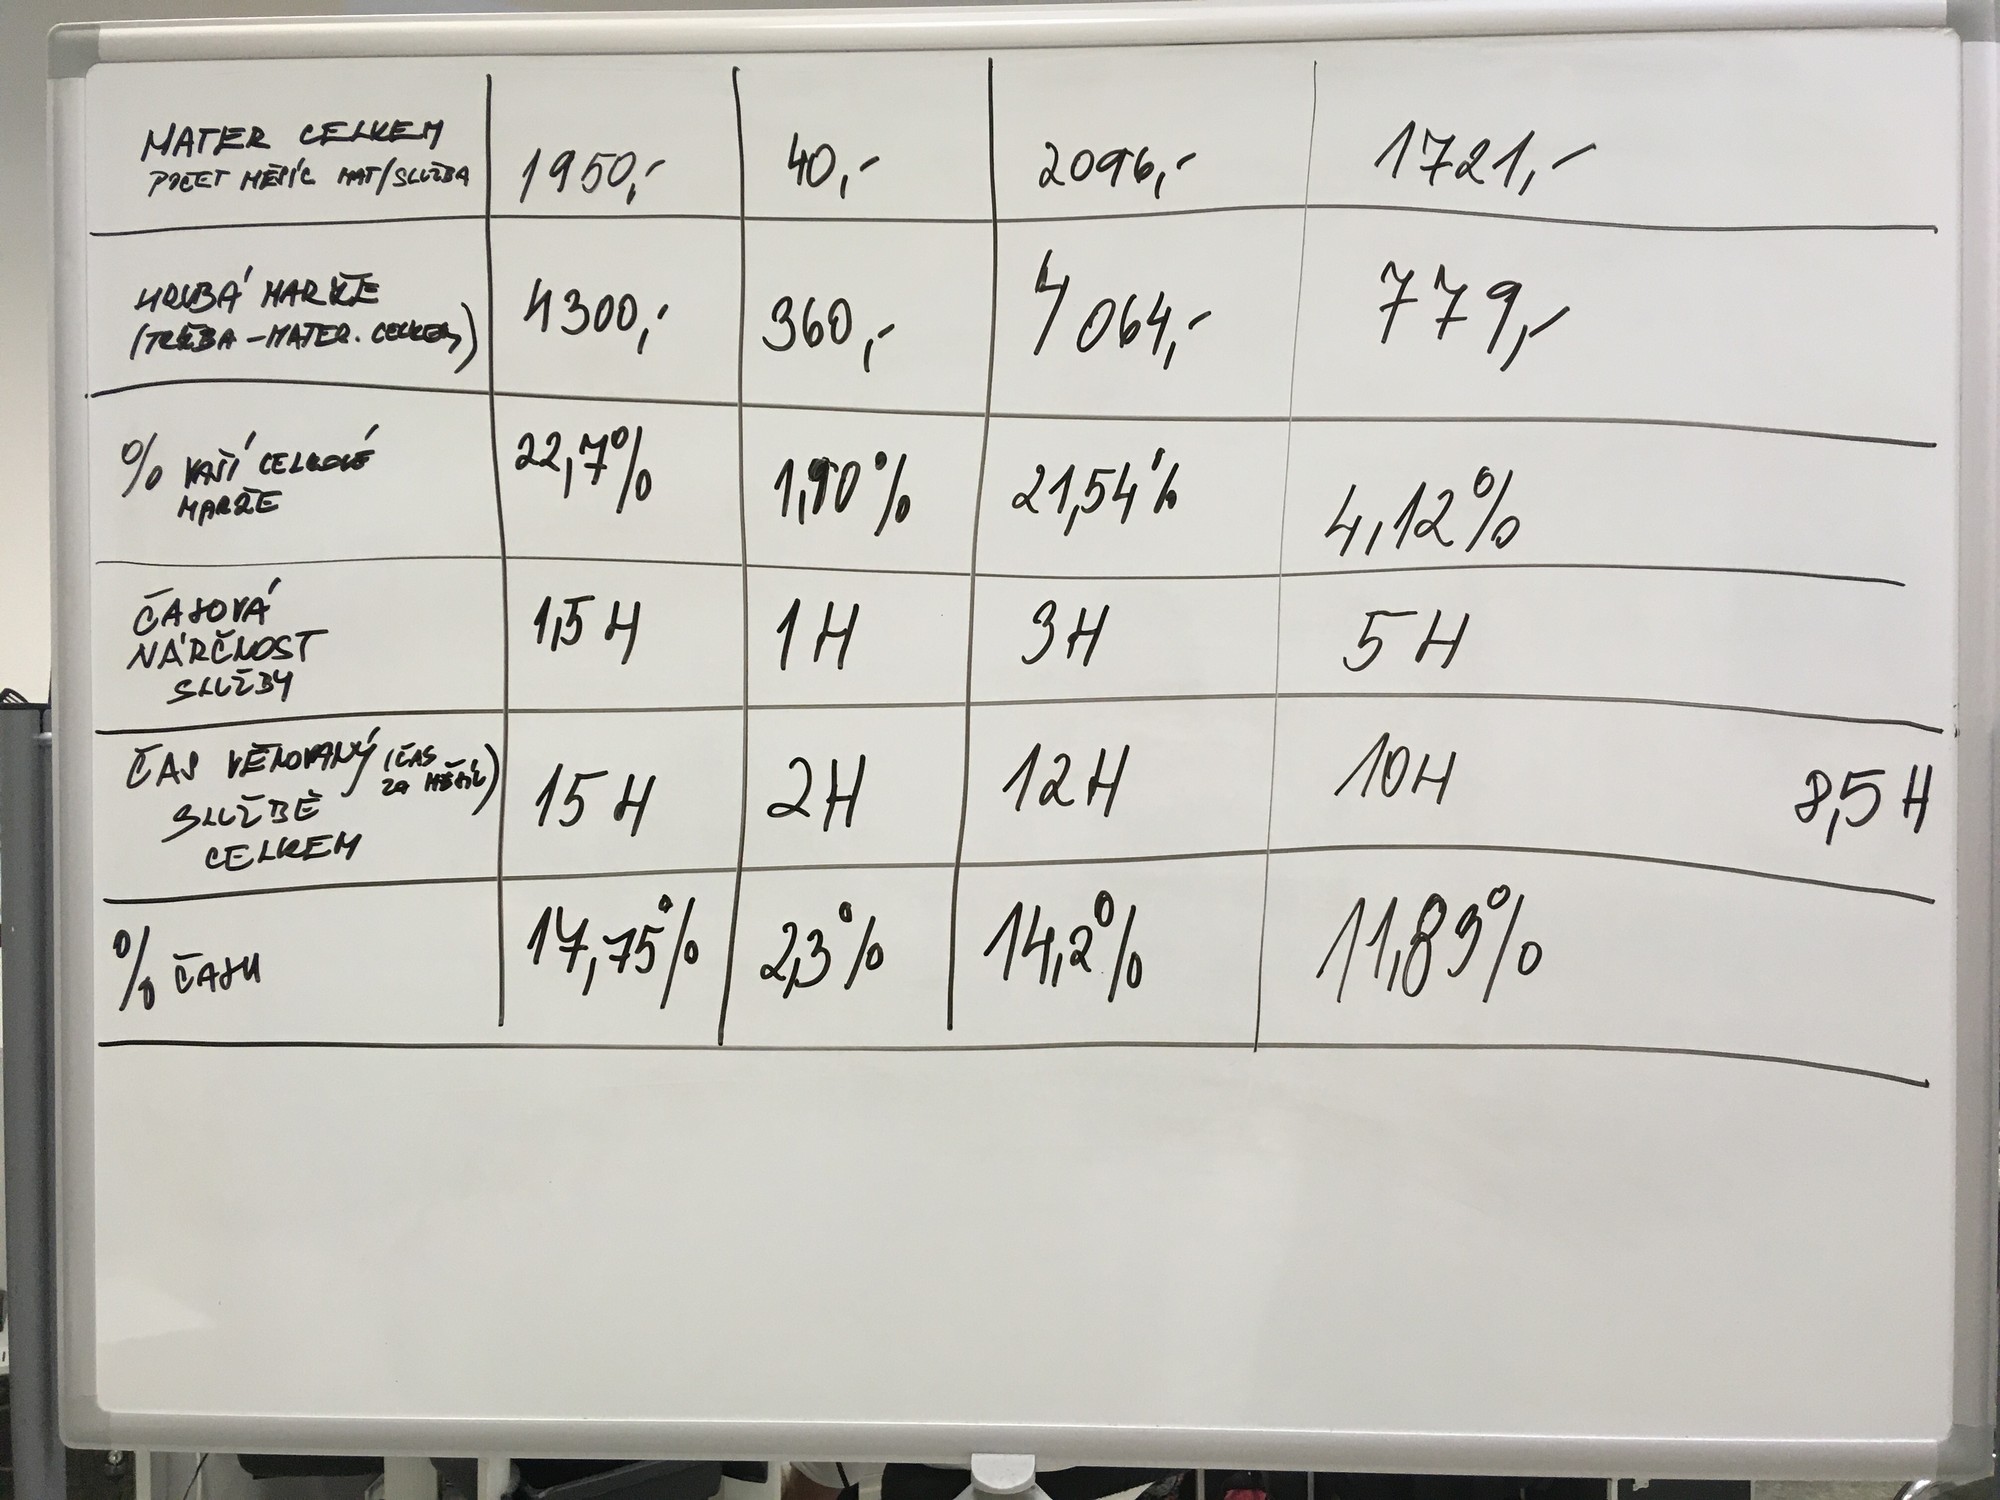 MATER CELKEM
POČET MĚSÍC MAT/SLUŽBA
1950,- 40,- 2096,- 1721,-
HRUBÁ MARŽE
(TRŽBA - MATER. CELKEM)
4300,- 360,- 4064,- 779,-
% VAŠÍ CELKOVÉ
MARŽE
22,7% 1,90% 21,54% 4,12%
ČASOVÁ
NÁRČNOST
SLUŽBY
1,5 H 1 H 3 H 5 H
ČAS VĚNOVANÝ (ČAS
ZA MĚSÍC)
SLUŽBĚ
CELKEM
15 H 2 H 12 H 10 H 8,5 H
% ČASU
17,75% 2,3% 14,2% 11,83%